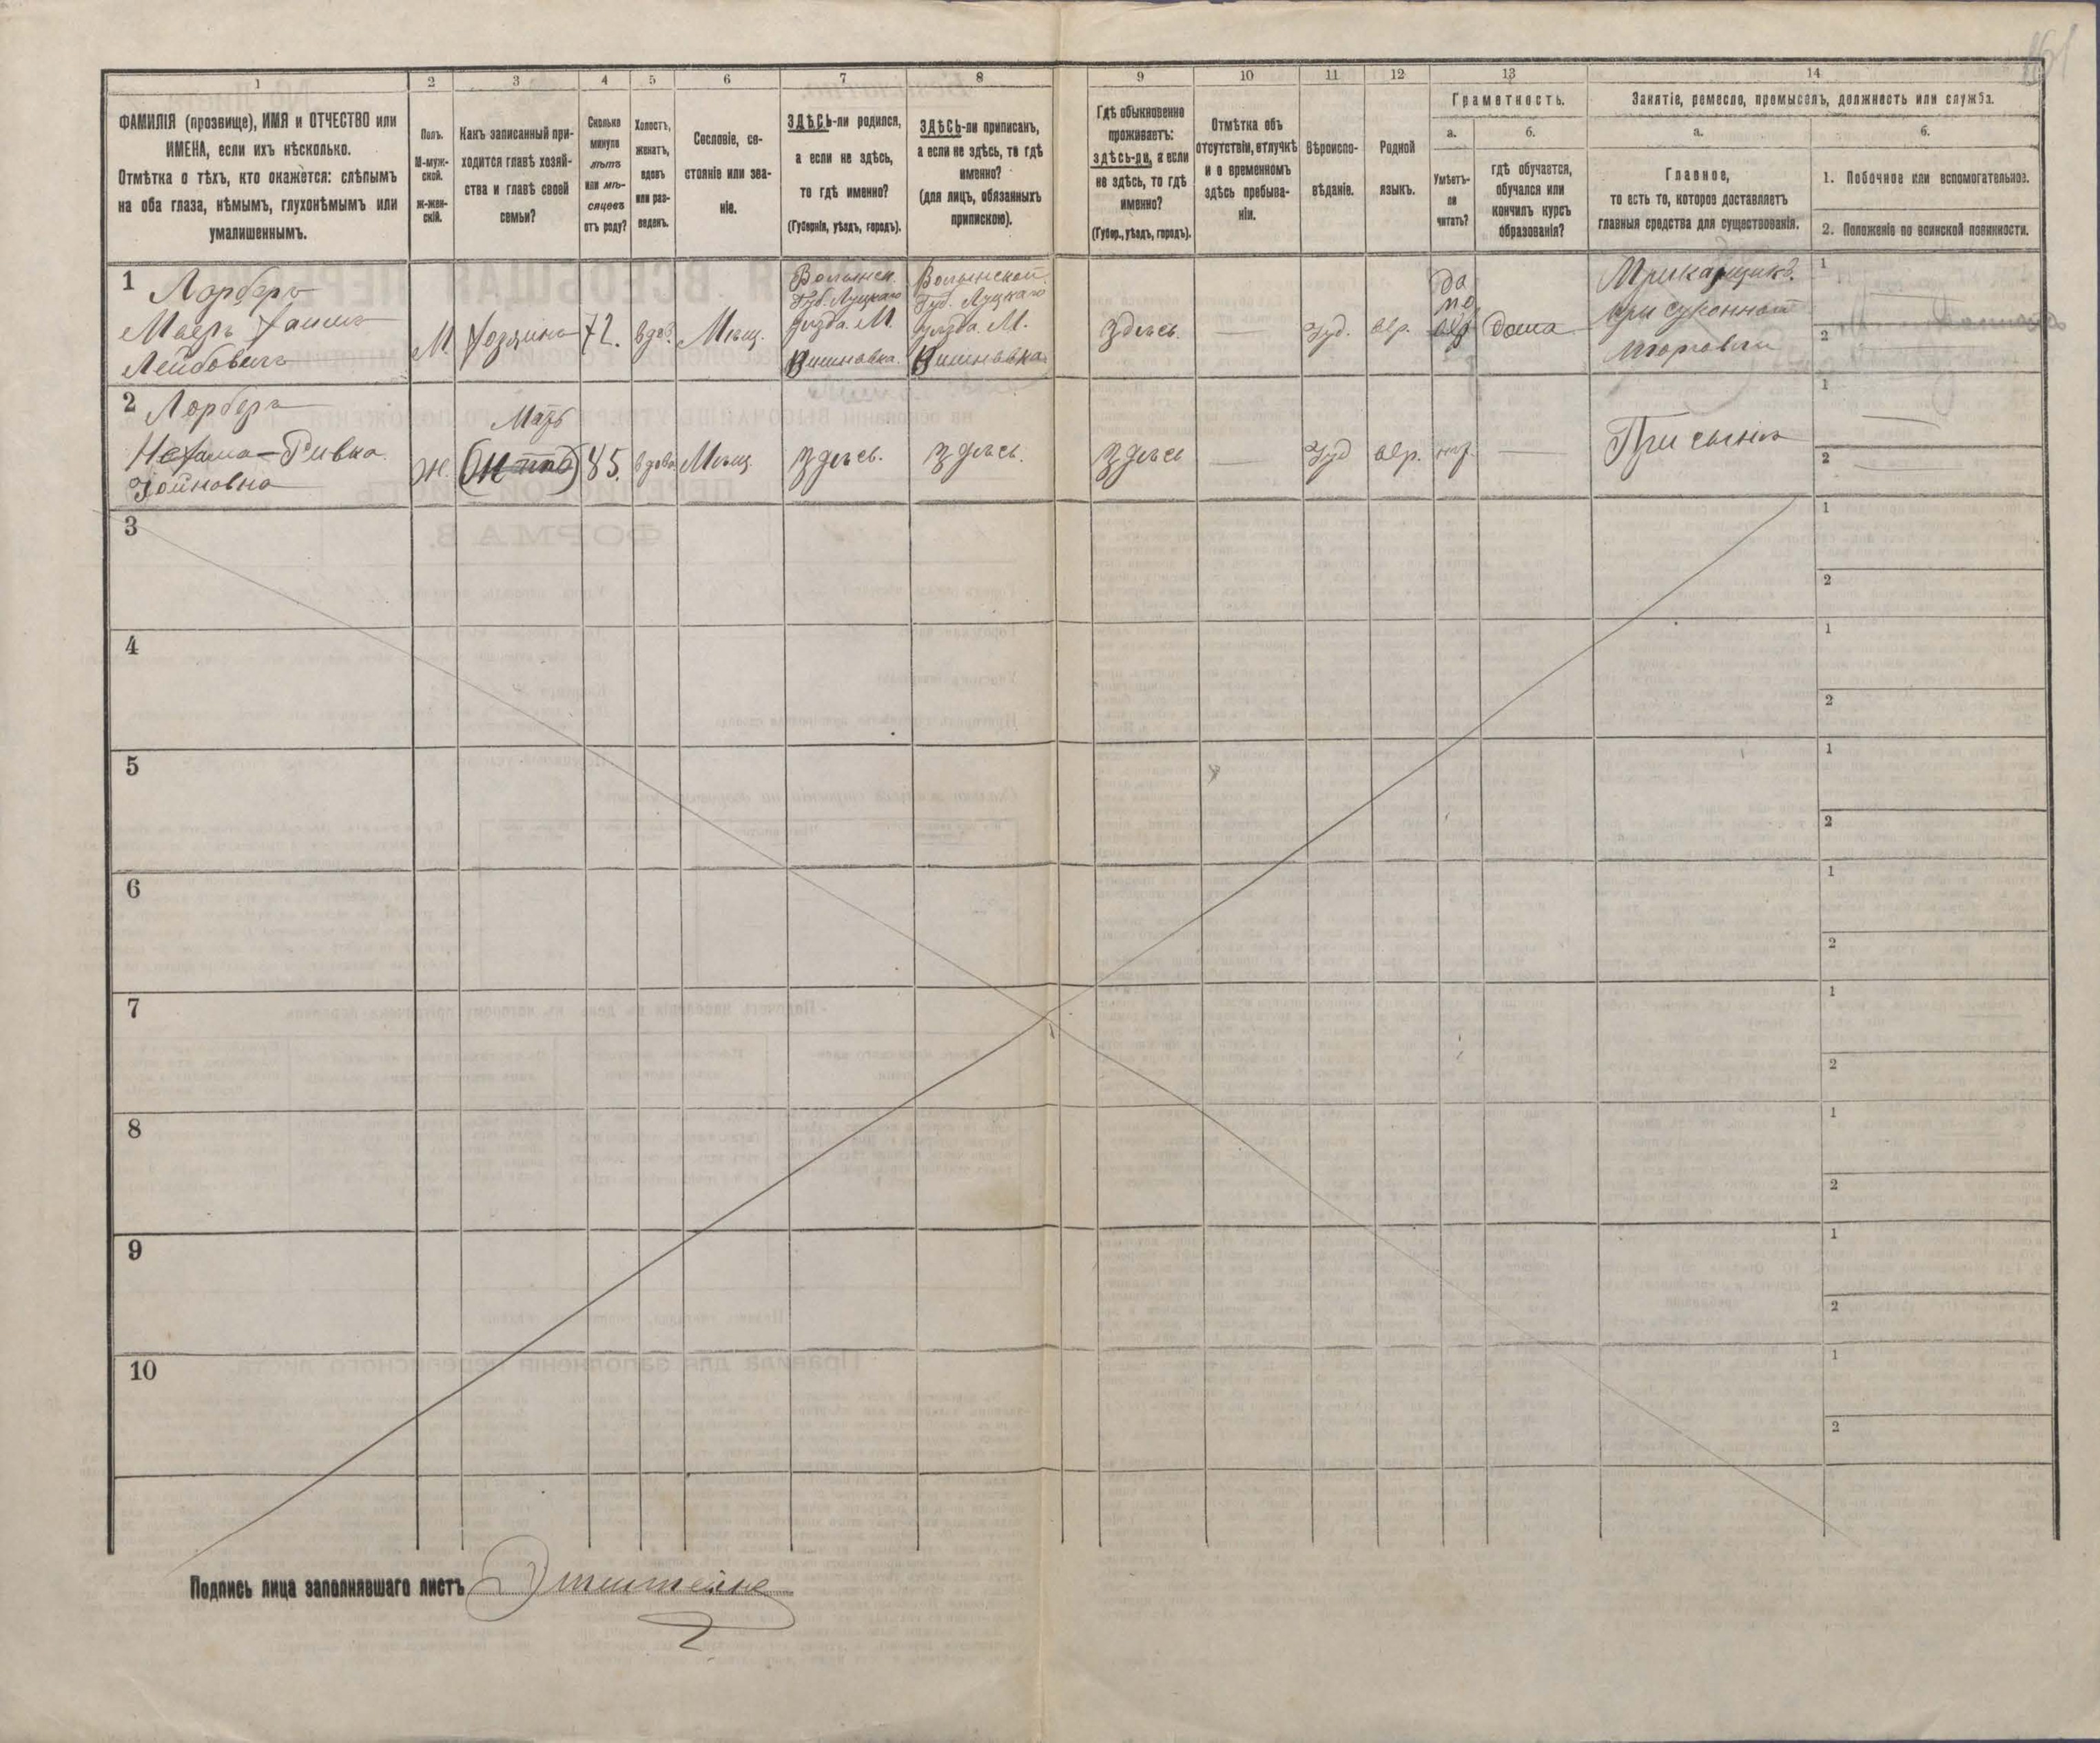 1
2
3
4
5
6
7
8
9
10
11
12
13
14
ФАМИЛІЯ (прозвище), ИМЯ и ОТЧЕСТВО или
ИМЕНА, если ихъ нѣсколько.
Отмѣтка о тѣхъ, кто окажется: слѣпымъ
на оба глаза, нѣмымъ, глухонѣмымъ или
умалишеннымъ.
Полъ.
М-муж-
ской.
ж-жен-
скій.
Какъ записанный при-
ходится главѣ хозяй-
ства и главѣ своей
семьи?
Сколько
минуло
лѣтъ
или мѣ-
сяцевъ
отъ роду?
Холостъ,
женатъ,
вдовъ
или раз-
веденъ.
Сословіе, со-
стояніе или зва-
ніе.
ЗДѢСЬ-ли родился,
а если не здѣсь,
то гдѣ именно?
(Губернія, уѣздъ, городъ).
ЗДѢСЬ-ли приписанъ,
а если не здѣсь, то гдѣ
именно?
(для лицъ, обязанныхъ
припискою).
Гдѣ обыкновенно
проживаетъ:
здѣсь-ли, а если
не здѣсь, то гдѣ
именно?
(Губер., уѣздъ, городъ).
Отмѣтка объ
отсутствіи, отлучкѣ
и о временномъ
здѣсь пребыва-
ніи.
Вѣроиспо-
вѣданіе.
Родной
языкъ.
Грамотность.
а.
Умѣетъ-
ли
читать?
б.
гдѣ обучается,
обучался или
кончилъ курсъ
образованія?
Занятіе, ремесло, промыселъ, должность или служба.
а.
Главное,
то есть то, которое доставляетъ
главныя средства для существованія.
б.
1. Побочное или вспомогательное.
2. Положеніе по воинской повинности.
1
Лорберъ
Маеръ Хаимъ
Лейбовичъ
М.
Хозяинъ
72.
вдов.
Мѣщ.
Волынск.
Губ. Луцкаго
уѣзда. М.
Вишновка.
Волынской
Губ. Луцкаго
уѣзда. М.
Вишновка.
Здѣсь.
Іуд.
евр.
да
по
евр
дома
Прикащикъ.
при суконной
торговли
1
2
2
Лорберъ
Нехама-Ривка
Іойновна
Ж.
Мать
85.
вдова
Мѣщ.
Здѣсь.
Здѣсь.
Здѣсь
Іуд
евр.
нѣт.
При сынѣ
1
2
3
1
2
4
1
2
5
1
2
6
1
2
7
1
2
8
1
2
9
1
2
10
1
2
Подпись лица заполнявшаго листъ